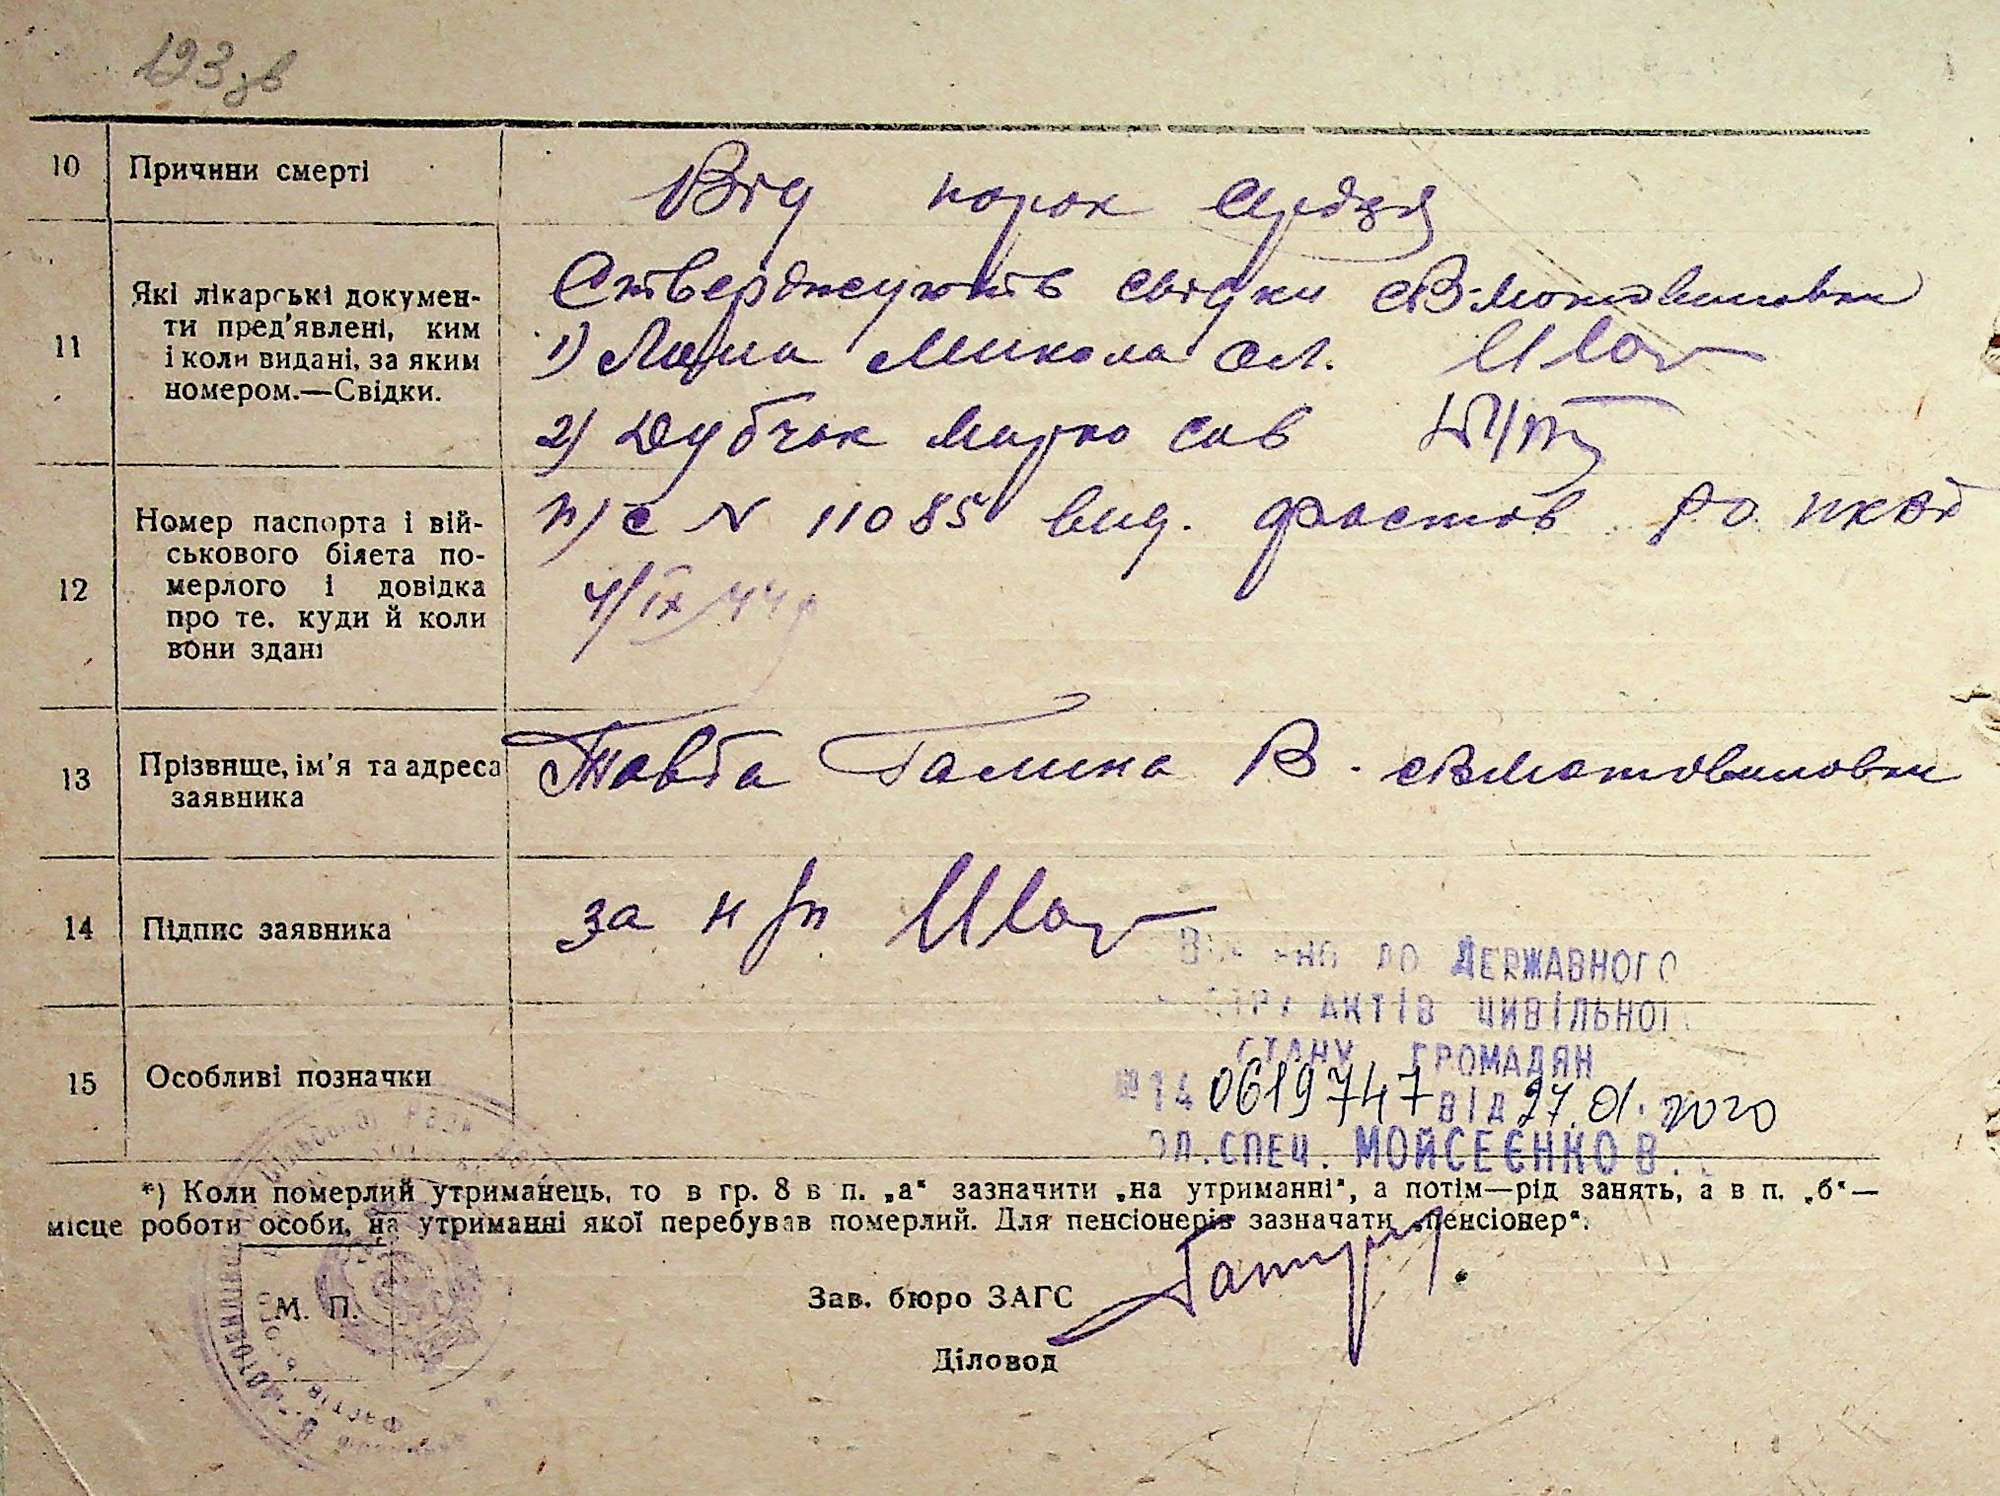 193 зв
10 Причини смерті
Від порок сердця
11 Які лікарські докумен-
ти пред'явлені, ким
і коли видані, за яким
номером.—Свідки.
Стверджують свідки с В-мотовиловки
1) Микола Ол.
2) Дубчак Марко Сав
12 Номер паспорта і вій-
ськового білета по-
мерлого і довідка
про те. куди й коли
вони здані
п/с N 11085 вид. Фастов РО НКВД
4/IX 44р
13 Прізвище, ім'я та адреса
заявника
Товба Галина В. с Вмотовиловки
14 Підпис заявника
за н/гр
15 Особливі позначки
до Державного
актів цивільної
стану громадян
№ 14 0619747 від 27.01.2020
спец. Мойсеєнко В.
*) Коли померлий утриманець, то в гр. 8 в п. „а“ зазначити „на утриманні“, а потім—рід занять, а в п. „б“—
місце роботи особи, на утриманні якої перебував померлий. Для пенсіонерів зазначати „пенсіонер“.
М. П.
Зав. бюро ЗАГС
Діловод